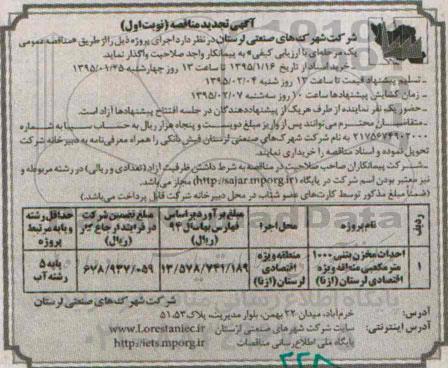 آگهی تجدید مناقصه (نوبت اول)
شرکت شهرک های صنعتی لرستان در نظر دارد اجرای پروژه ذیل را از طریق «مناقصه عمومی
یک مرحله‌ای با ارزیابی کیفی» به پیمانکار واجد صلاحیت واگذار نماید.
خرید اسناد از تاریخ ۱۳۹۵/۱/۱۶ تا ساعت ۱۳ روز چهارشنبه ۱۳۹۵/۰۱/۲۵
- تسلیم پیشنهاد قیمت تا ساعت ۱۳ روز شنبه ۱۳۹۵/۰۲/۰۴
- زمان گشایش پیشنهادها ساعت ۱۰ روز سه‌شنبه ۱۳۹۵/۰۲/۰۷
- حضور یک نفر نماینده از طرف هریک از پیشنهاددهندگان در جلسه افتتاح پیشنهادها آزاد است.
- متقاضیان محترم می‌توانند پس از واریز مبلغ دویست و پنجاه هزار ریال به حساب سیبا به شماره
۲۱۷۵۶۷۴۹۰۲۰۰۰ به نام شرکت شهرک‌های صنعتی لرستان فیش بانکی را همراه معرفی‌نامه به دبیرخانه شرکت
تحویل نموده و اسناد مناقصه را خریداری نمایند.
- شرکت پیمانکاران صاحب صلاحیت در مناقصه به شرط داشتن ظرفیت آزاد (تعدادی و ریالی) در رشته مربوطه و
نیز معتبر بودن اسم شرکت در پایگاه (http://sajar.mporg.ir) مجاز می‌باشد.
(ضمناً مبلغ مذکور توسط کارت‌های عضو شتاب در محل دبیرخانه شرکت قابل پرداخت می‌باشد.)
ردیف | نام پروژه | محل اجرا | مبلغ برآورد براساس فهارس بهاء سال ۹۴ (ریال) | مبلغ تضمین شرکت در فرآیند ارجاع کار (ریال) | حداقل رشته و پایه مرتبط پروژه
۱ | احداث مخزن بتنی ۱۰۰۰ متر مکعبی منطقه ویژه اقتصادی لرستان (ازنا) | منطقه ویژه اقتصادی لرستان (ازنا) | ۱۳/۵۷۸/۷۴۱/۱۸۹ | ۶۷۸/۹۳۷/۰۵۹ | پایه ۵ رشته آب
شرکت شهرک های صنعتی لرستان
آدرس: خرم‌آباد، میدان ۲۲ بهمن، بلوار مدیریت، پلاک ۵۳
آدرس اینترنتی: سایت شرکت شهرک‌های صنعتی لرستان www.Lorestaniec.ir
پایگاه ملی اطلاع رسانی مناقصات http://iets.mporg.ir